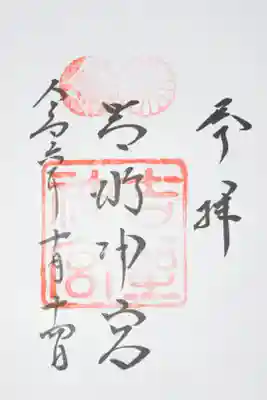 参拝
吉野神宮
令和六年十月十四日